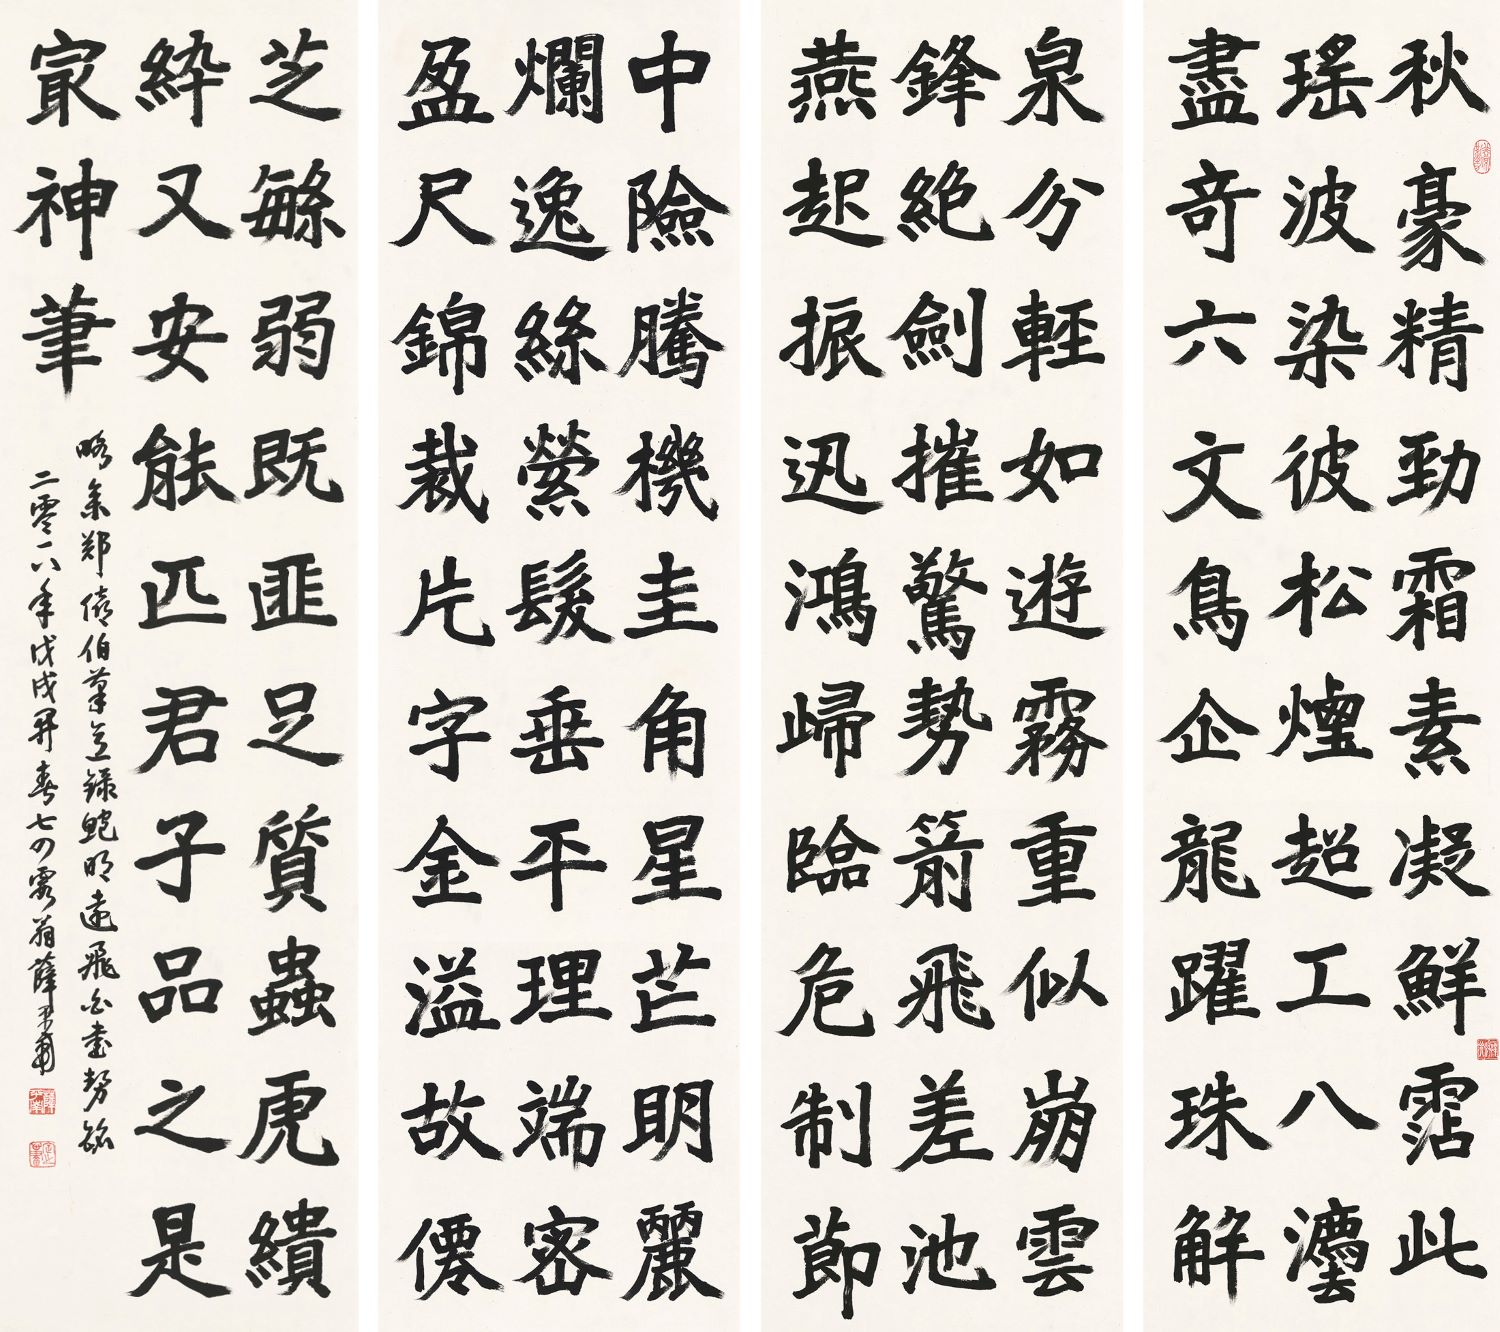 秋豪精勁霜素凝鮮霑此
瑤波染彼松煙超工八灋
盡奇六文鳥企龍躍珠解
泉分輕如遊霧重似崩雲
鋒絕劍摧驚勢箭飛差池
燕起振迅鴻歸臨危制節
中險騰機圭角星芒明麗
爛逸絲縈髮垂平理端密
盈尺錦裁片字金溢故僊
芝緐弱既匪足質蟲虎繢
紣又安能匹君子品之是
冣神筆
略參鄭僖伯筆意錄鮑明遠飛白書勢銘
二零一八年戊戌開春七四雱翁薛